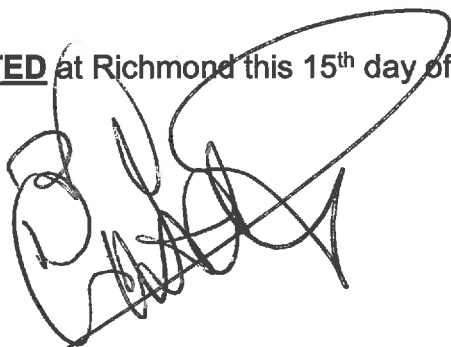 TED at Richmond this 15th day of